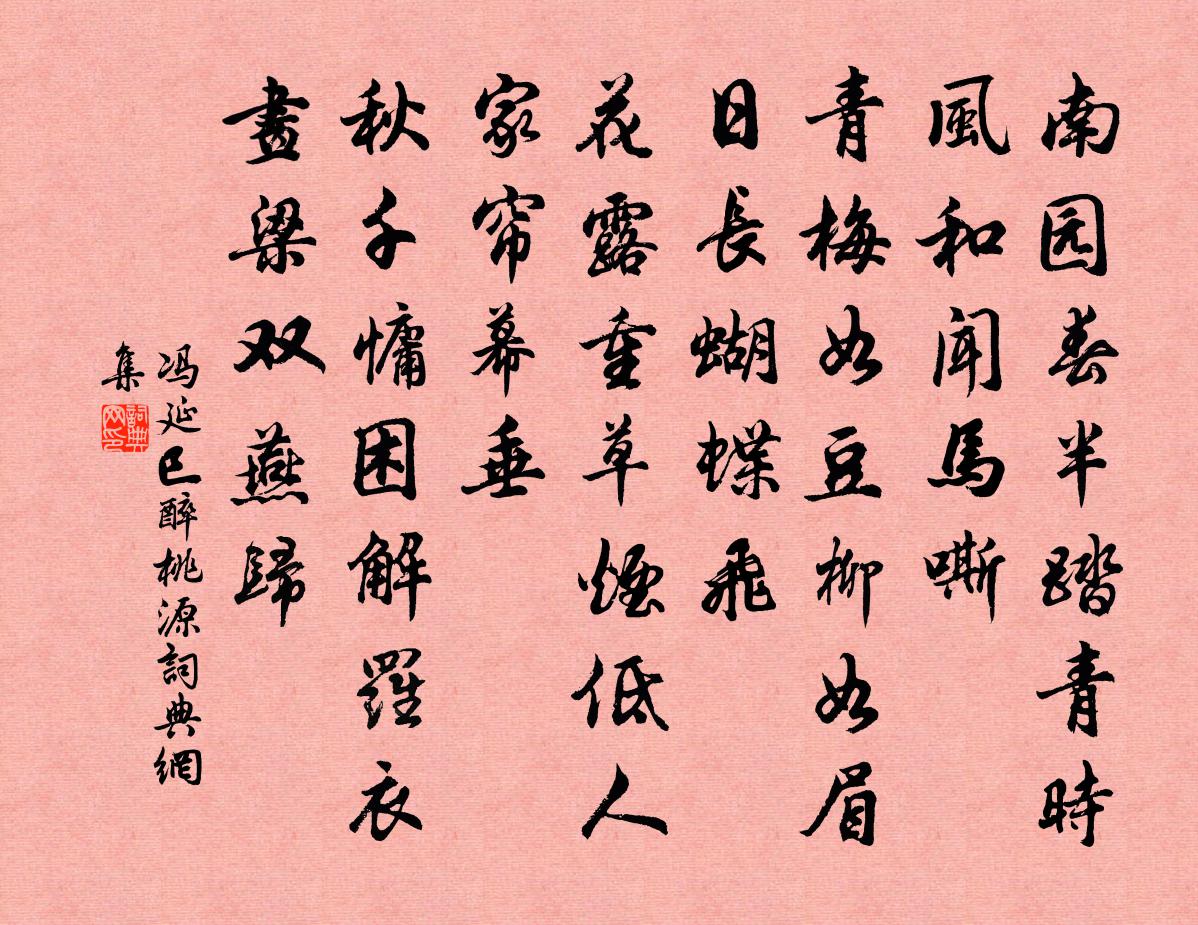 南园春半踏青時
風和聞馬嘶
青梅如豆柳如眉
日長蝴蝶飛
花露重草煙低人
家帘幕垂
秋千慵困解羅衣
畫梁双燕歸
冯延巳醉桃源詞典網
集
詞典網印